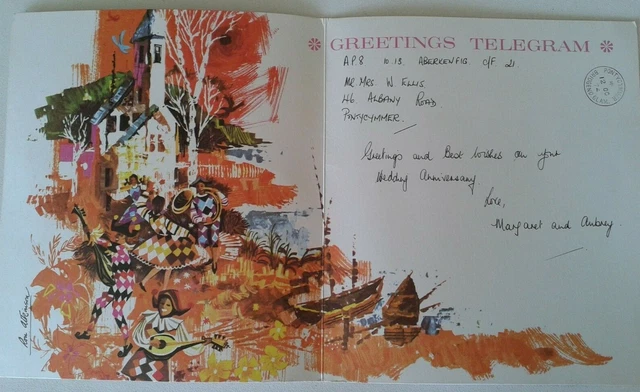 GREETINGS TELEGRAM
AP8 10.13 ABERKENFIG O/F 21
MR MRS W ELLIS
46 ALBANY ROAD
PONTYCYMMER
Greetings and Best Wishes on your
Wedding Anniversary
Love,
Margaret and Aubrey